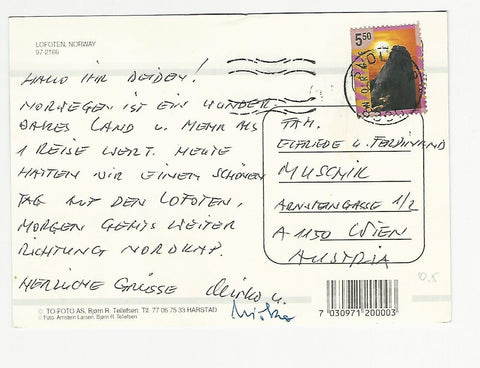 LOFOTEN, NORWAY
97-2166
HALLO IHR BEIDEN!
NORWEGEN IST EIN WUNDER-
BARES LAND U. MEHR ALS
1 REISE WERT. HEUTE
HATTEN WIR EINEN SCHÖNEN
TAG AUF DEN LOFOTEN,
MORGEN GEHTS WEITER
RICHTUNG NORDKAP.
HERZLICHE GRÜSSE
u.
5.50
FAM.
ELFRIEDE U. FERDINAND
MUSCHIK
ARNSTEINGASSE 1/2
A 1150 WIEN
AUSTRIA
0.5
© TO-FOTO AS. Bjørn R. Tellefsen. Tlf. 77 06 75 33 HARSTAD
Foto: Arnstein Larsen, Bjørn R. Tellefsen
7 030971 200003